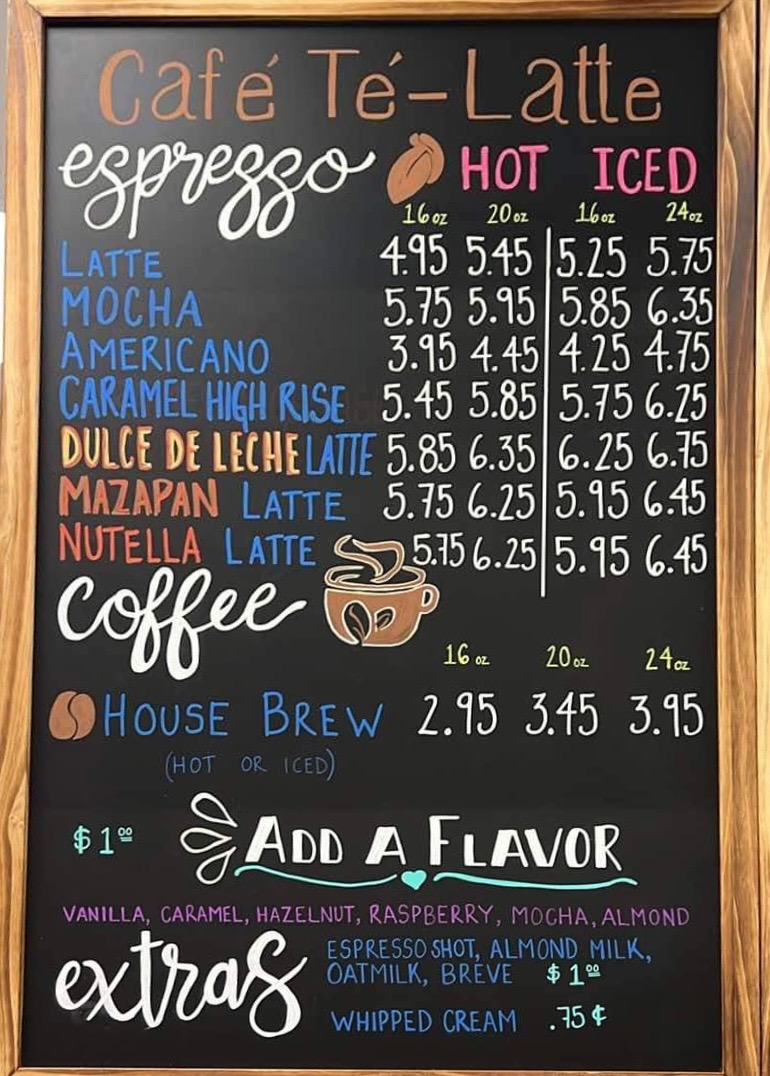 Café Té-Latte
espresso HOT ICED
16oz 20oz 16oz 24oz
LATTE 4.95 5.45 5.25 5.75
MOCHA 5.75 5.95 5.85 6.35
AMERICANO 3.95 4.45 4.25 4.75
CARAMEL HIGH RISE 5.45 5.85 5.75 6.25
DULCE DE LECHE LATTE 5.85 6.35 6.25 6.75
MAZAPAN LATTE 5.75 6.25 5.95 6.45
NUTELLA LATTE 5.75 6.25 5.95 6.45
coffee
16oz 20oz 24oz
HOUSE BREW 2.95 3.45 3.95
(HOT OR ICED)
$1.00 ADD A FLAVOR
VANILLA, CARAMEL, HAZELNUT, RASPBERRY, MOCHA, ALMOND
extras
ESPRESSO SHOT, ALMOND MILK,
OATMILK, BREVE $1.00
WHIPPED CREAM .75¢